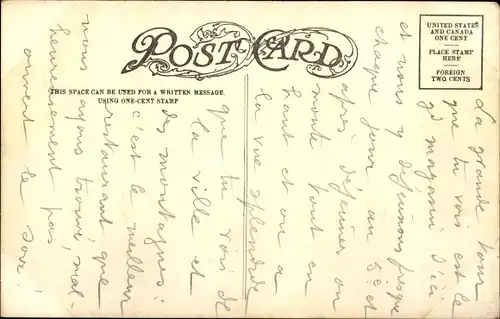 POST CARD
THIS SPACE CAN BE USED FOR A WRITTEN MESSAGE.
USING ONE-CENT STAMP
UNITED STATES
AND CANADA
ONE CENT
PLACE STAMP
HERE
FOREIGN
TWO CENTS
La grande tour
que tu vois est le
gd magasin d'ici
et nous y déjeunons presque
chaque jour au 5e et
après déjeuner on
monte tout en
haut et on a
la vue splendide
que tu vois de
la ville et
des montagnes:
c'est le meilleur
restaurant que
nous ayons trouvé, mal-
heureusement pas
ouvert le soir!